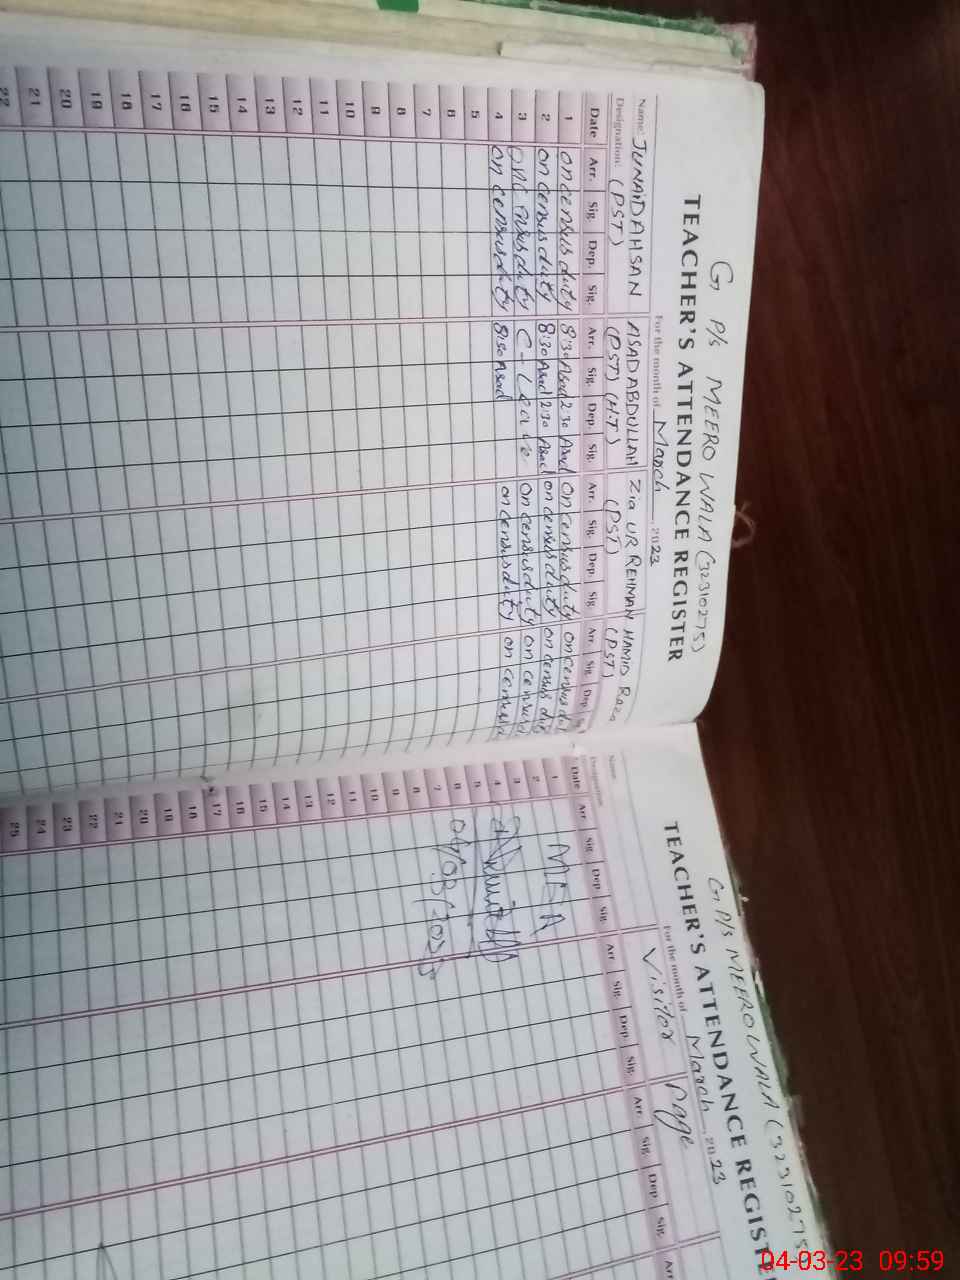 G P/S MEERO WALA (32310275)
TEACHER'S ATTENDANCE REGISTER
For the month of March, 2023
Name: JUNAID AHSAN ASAD ABDULLAH Zia UR REHMAN HAMID Raza
Designation: (PST) (PST) (H.T) (PST) (PST)
Date Arr. Sig. Dep. Sig. Arr. Sig. Dep. Sig. Arr. Sig. Dep. Sig. Arr. Sig. Dep.
1 on census duty 8:30 Asad 2:30 Asad on census duty on census du
2 on census duty 8:30 Asad 2:30 Asad on census duty on census dut
3 on census duty C-Leave on census duty on census d
4 on census duty 8:30 Asad on census duty on census d
5
6
7
8
9
10
11
12
13
14
15
16
17
18
19
20
21
22
G P/S MEEROWALA (32310275)
TEACHER'S ATTENDANCE REGISTE
For the month of March, 2023
Name Visitor Page
Designation
Date Arr. Sig. Dep. Sig. Arr. Sig. Dep. Sig. Arr. Sig. Dep. Sig. Arr
1 MEA
2
3
4
5
6 04/03/2023
7
8
9
10
11
12
13
14
15
16
17
18
19
20
21
22
23
24
25
04-03-23 09:59